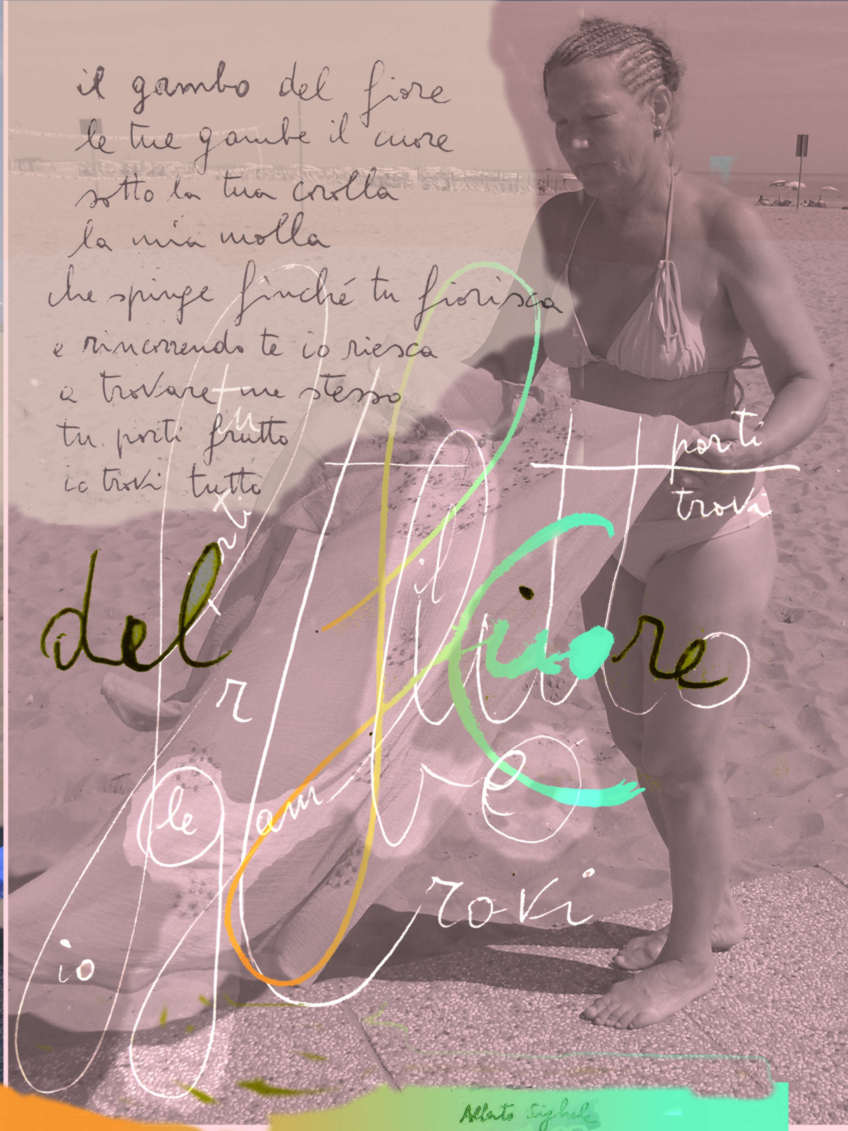 il gambo del fiore
le tue gambe il cuore
sotto la tua corolla
la mia molla
che spinge finché tu fiorisca
e rincorrendo te io riesca
a trovare me stesso
tu porti frutto
io trovi tutto
tu
porti
trovi
il
del
cuore
frutto
r
le
gambe
trovi
io
Alberto